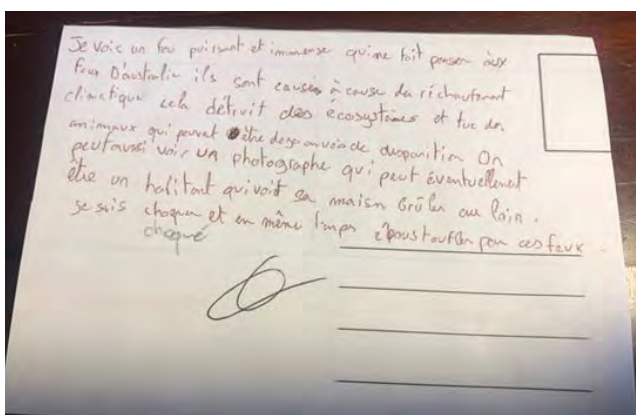 Je vois un feu puissant et immense qui me fait penser aux
feux D'australie ils sont causés à cause du réchaufemant
climatique cela détruit des écosystèmes et tue des
animaux qui peuvet être deja en voie de disparition On
peut aussi voir un photographe qui peut éventuellement
être un habitant qui voit sa maison brûler au loin.
Je suis choquer et en même temps époustoufler par ces feux
choqué